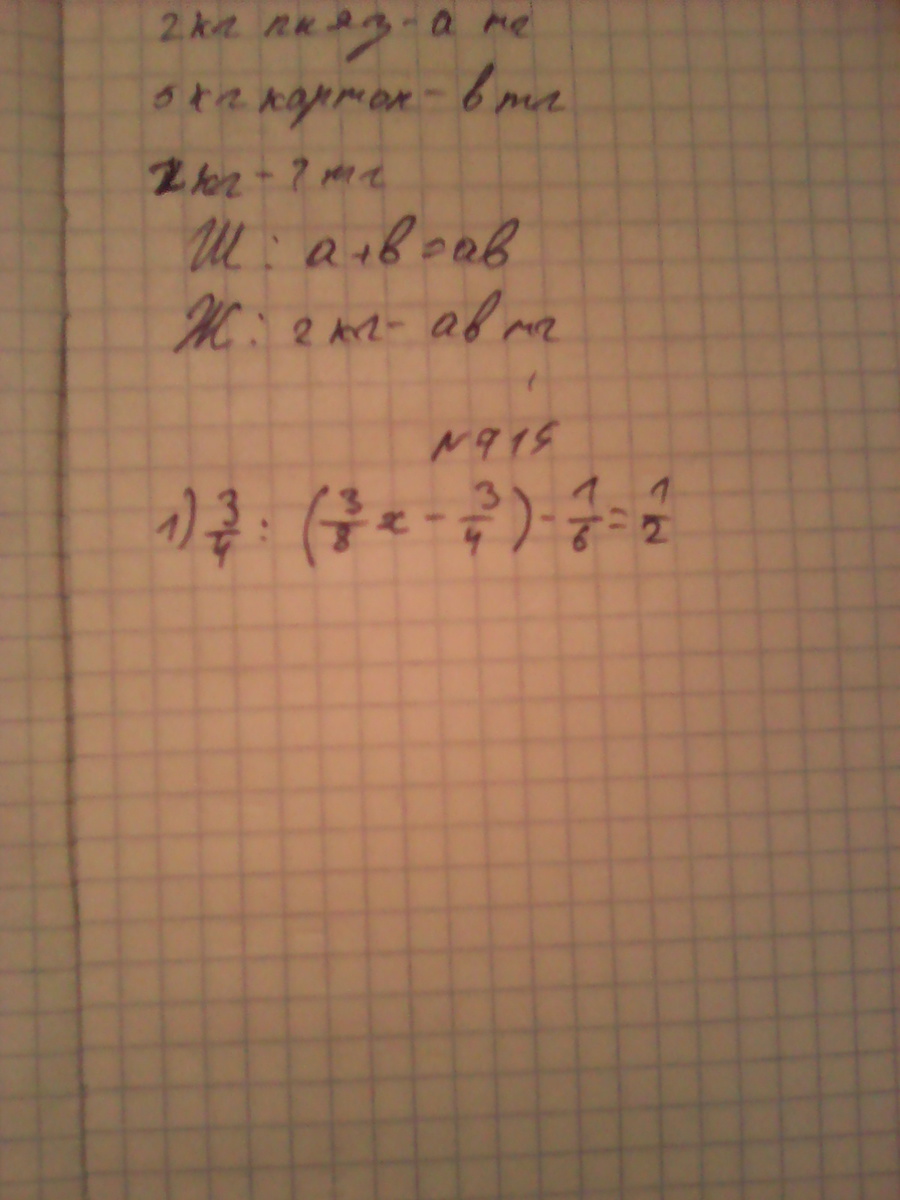 2 кг пияз - а тг
5 кг картоп - в тг
2 кг - ? тг
Ш: а + в = ав
Ж: 2 кг - ав тг
N 915
1) 3/4 : (3/8 x - 3/4) - 1/6 = 1/2